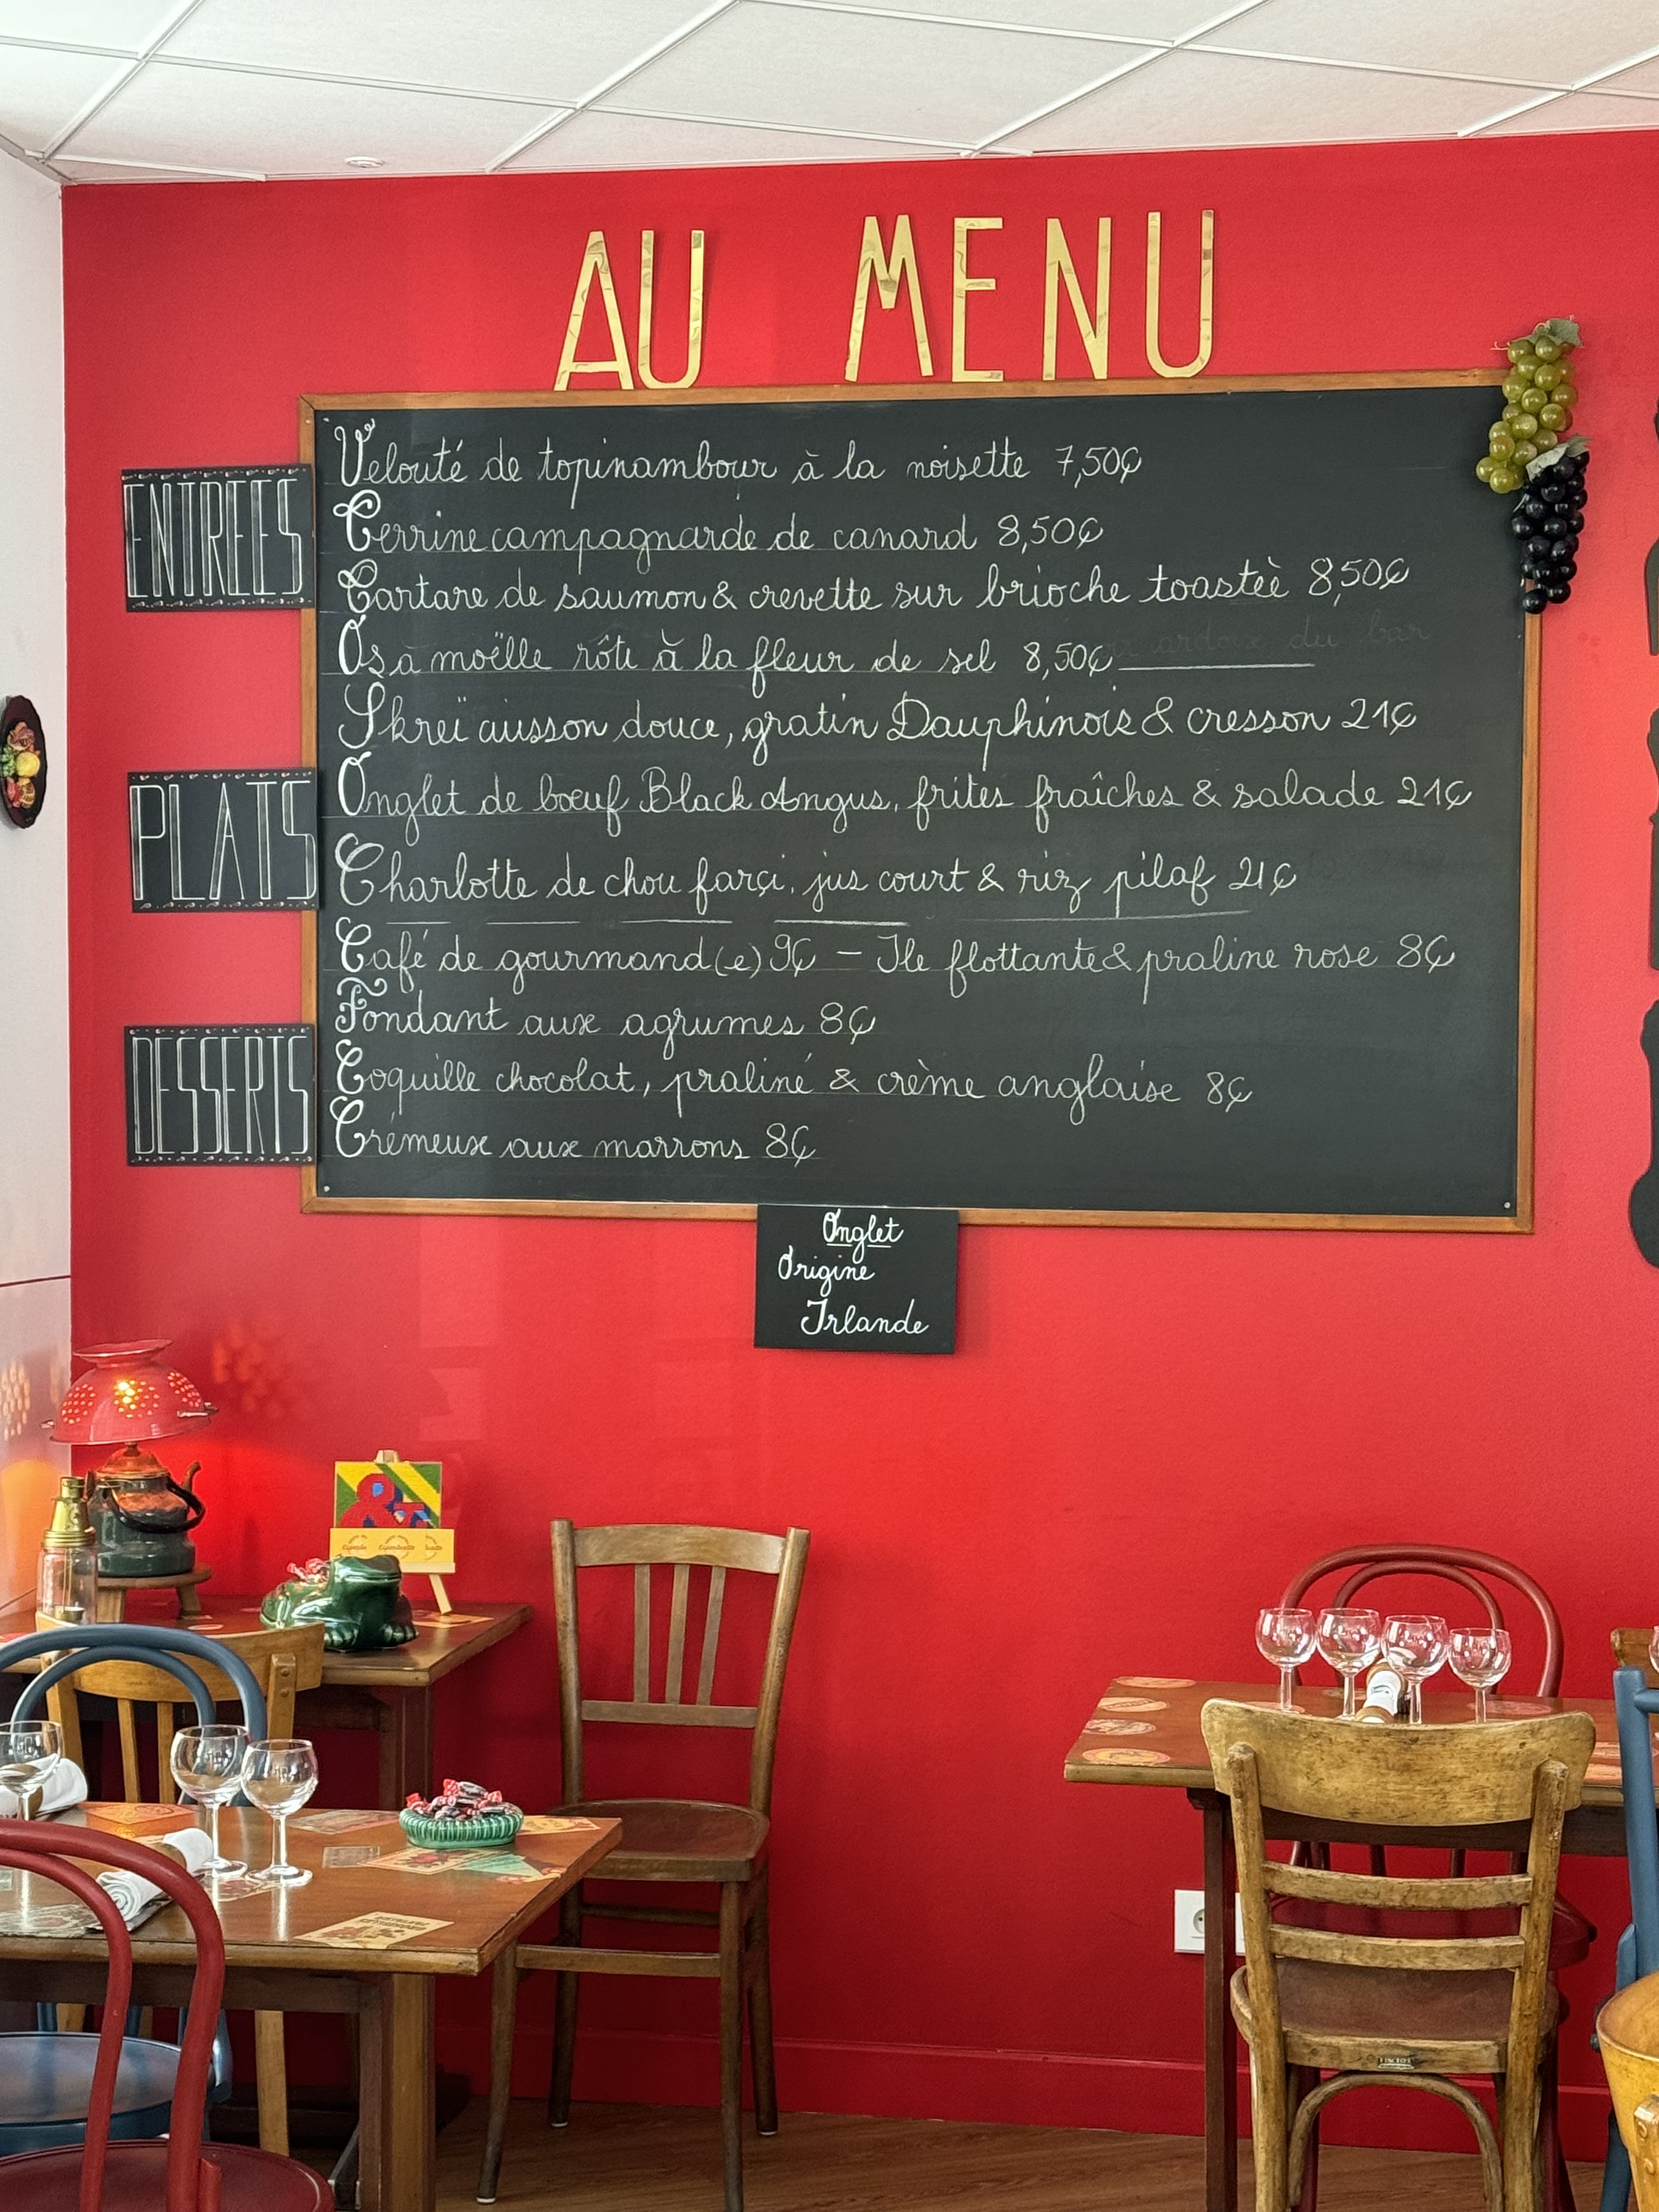 AU MENU
ENTREES
Velouté de topinambour à la noisette 7,50€
Terrine campagnarde de canard 8,50€
Tartare de saumon & crevette sur brioche toastéè 8,50€
Os à moëlle rôti à la fleur de sel 8,50€
ardoise du bar
PLATS
Skreï cuisson douce, gratin Dauphinois & cresson 21€
Onglet de bœuf Black Angus, frites fraîches & salade 21€
Charlotte de chou farçi, jus court & riz pilaf 21€
DESSERTS
Café de gourmand(e) 9€ – Ile flottante & praline rose 8€
Fondant aux agrumes 8€
Coquille chocolat, praliné & crème anglaise 8€
Crémeux aux marrons 8€
Onglet
Origine
Irlande